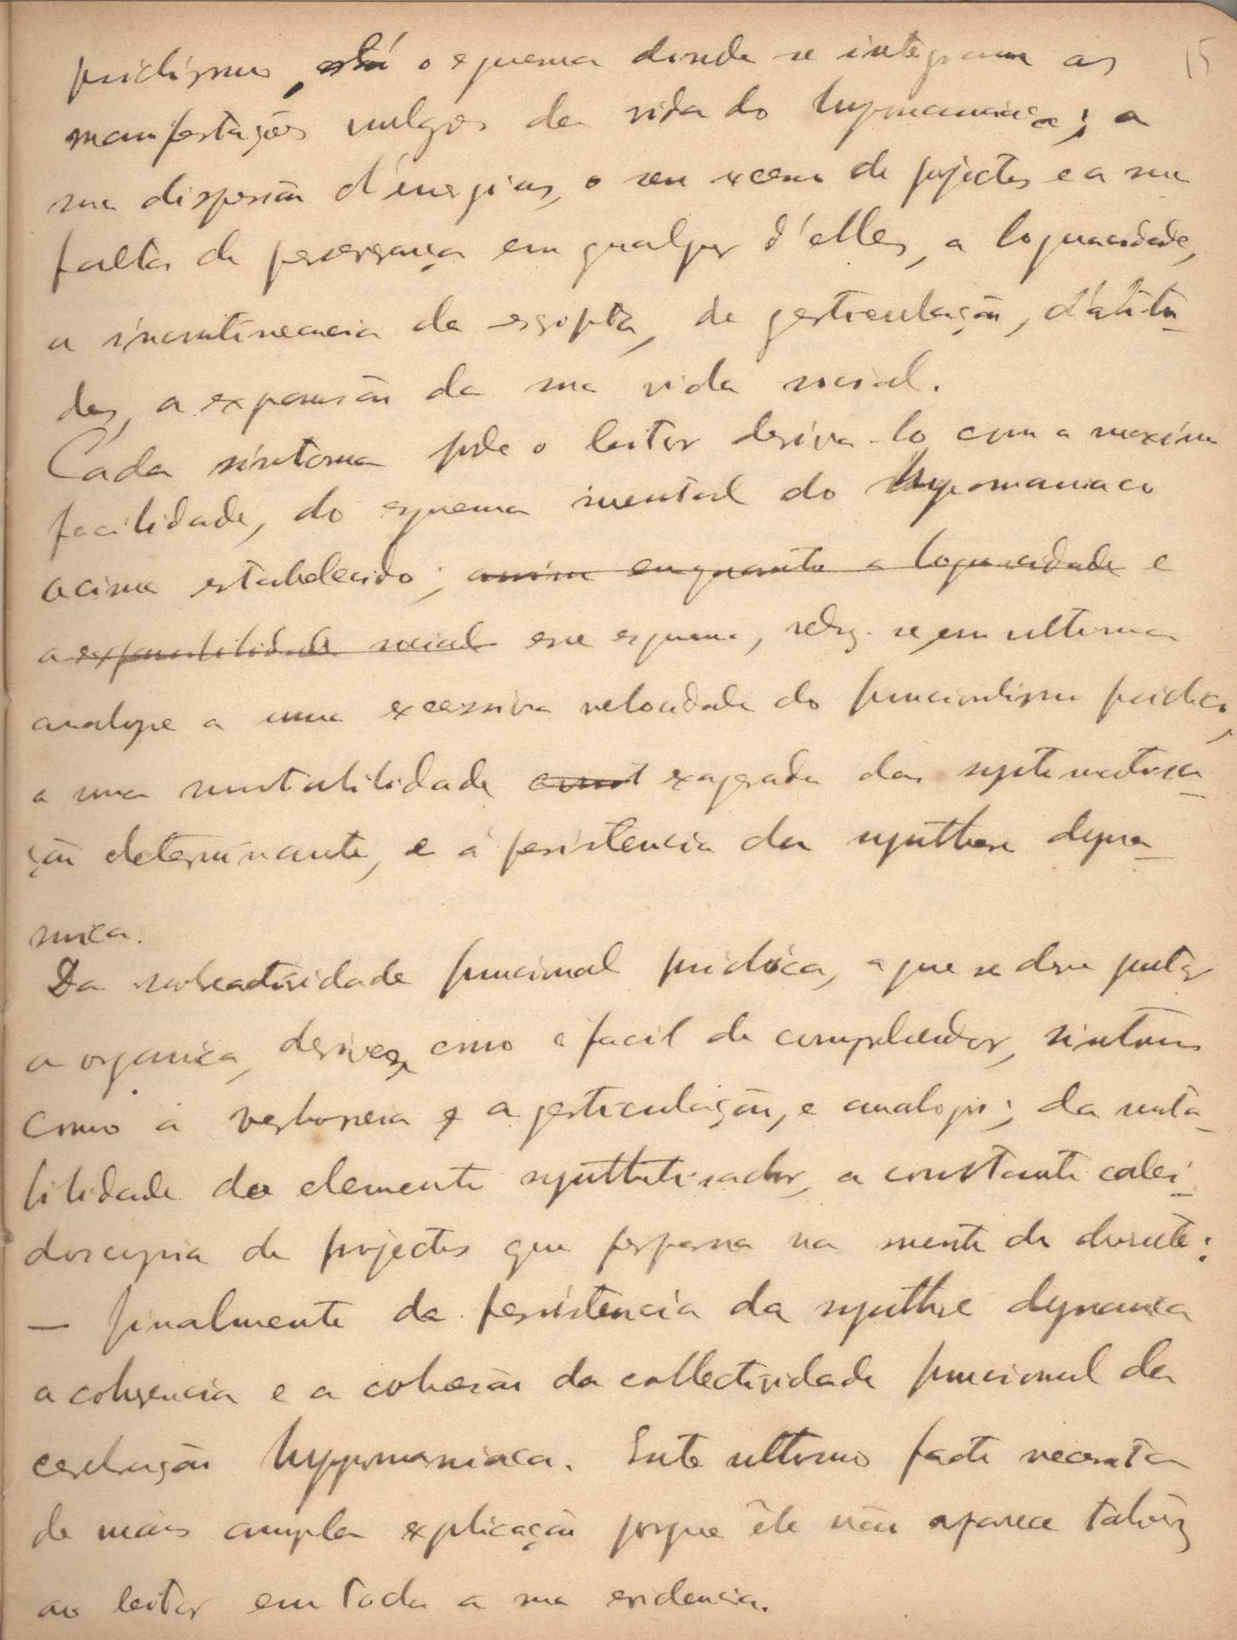 psichismo, está o esquema donde se integram as 15
manifestações vulgares da vida do hypomaniaco; a
sua dispersão d'energias, o seu excesso de projectos e a sua
falta de perseverança em qualquer d'elles, a loquacidade,
a incontinencia da escripta, de gesticulação, d'atitu-
des, a expansão da sua vida social.
Cada sintoma pode o leitor deriva-lo com a maxima
facilidade, do esquema mental do hypomaniaco
acima estabelecido; assim enquanto a loquacidade e
a expansibilidade social esse esquema, reduz-se, em ultima
analyse a uma excessiva velocidade do funcionalismo psichico,
a uma mutabilidade exagerada da systematisa-
ção determinante, e á persistencia da synthese dyna-
mica.
Da sobreactividade funcional psichica, a que se deve juntar
a organica, derivam, como é facil de comprehender, sintomas
como a verbosena e a gesticulação, e analogos; da muta-
bilidade do elemento synthetisador, a constante calei-
doscopia de projectos que perpassa na mente do doente:
— finalmente da persistencia da synthese dynamica
a coherencia e a cohesão da collectividade funcional da
cerebração hypomaniaca. Este ultimo facto necessita
de mais ampla explicação porque êle não aparece talvez
ao leitor em toda a sua evidencia.